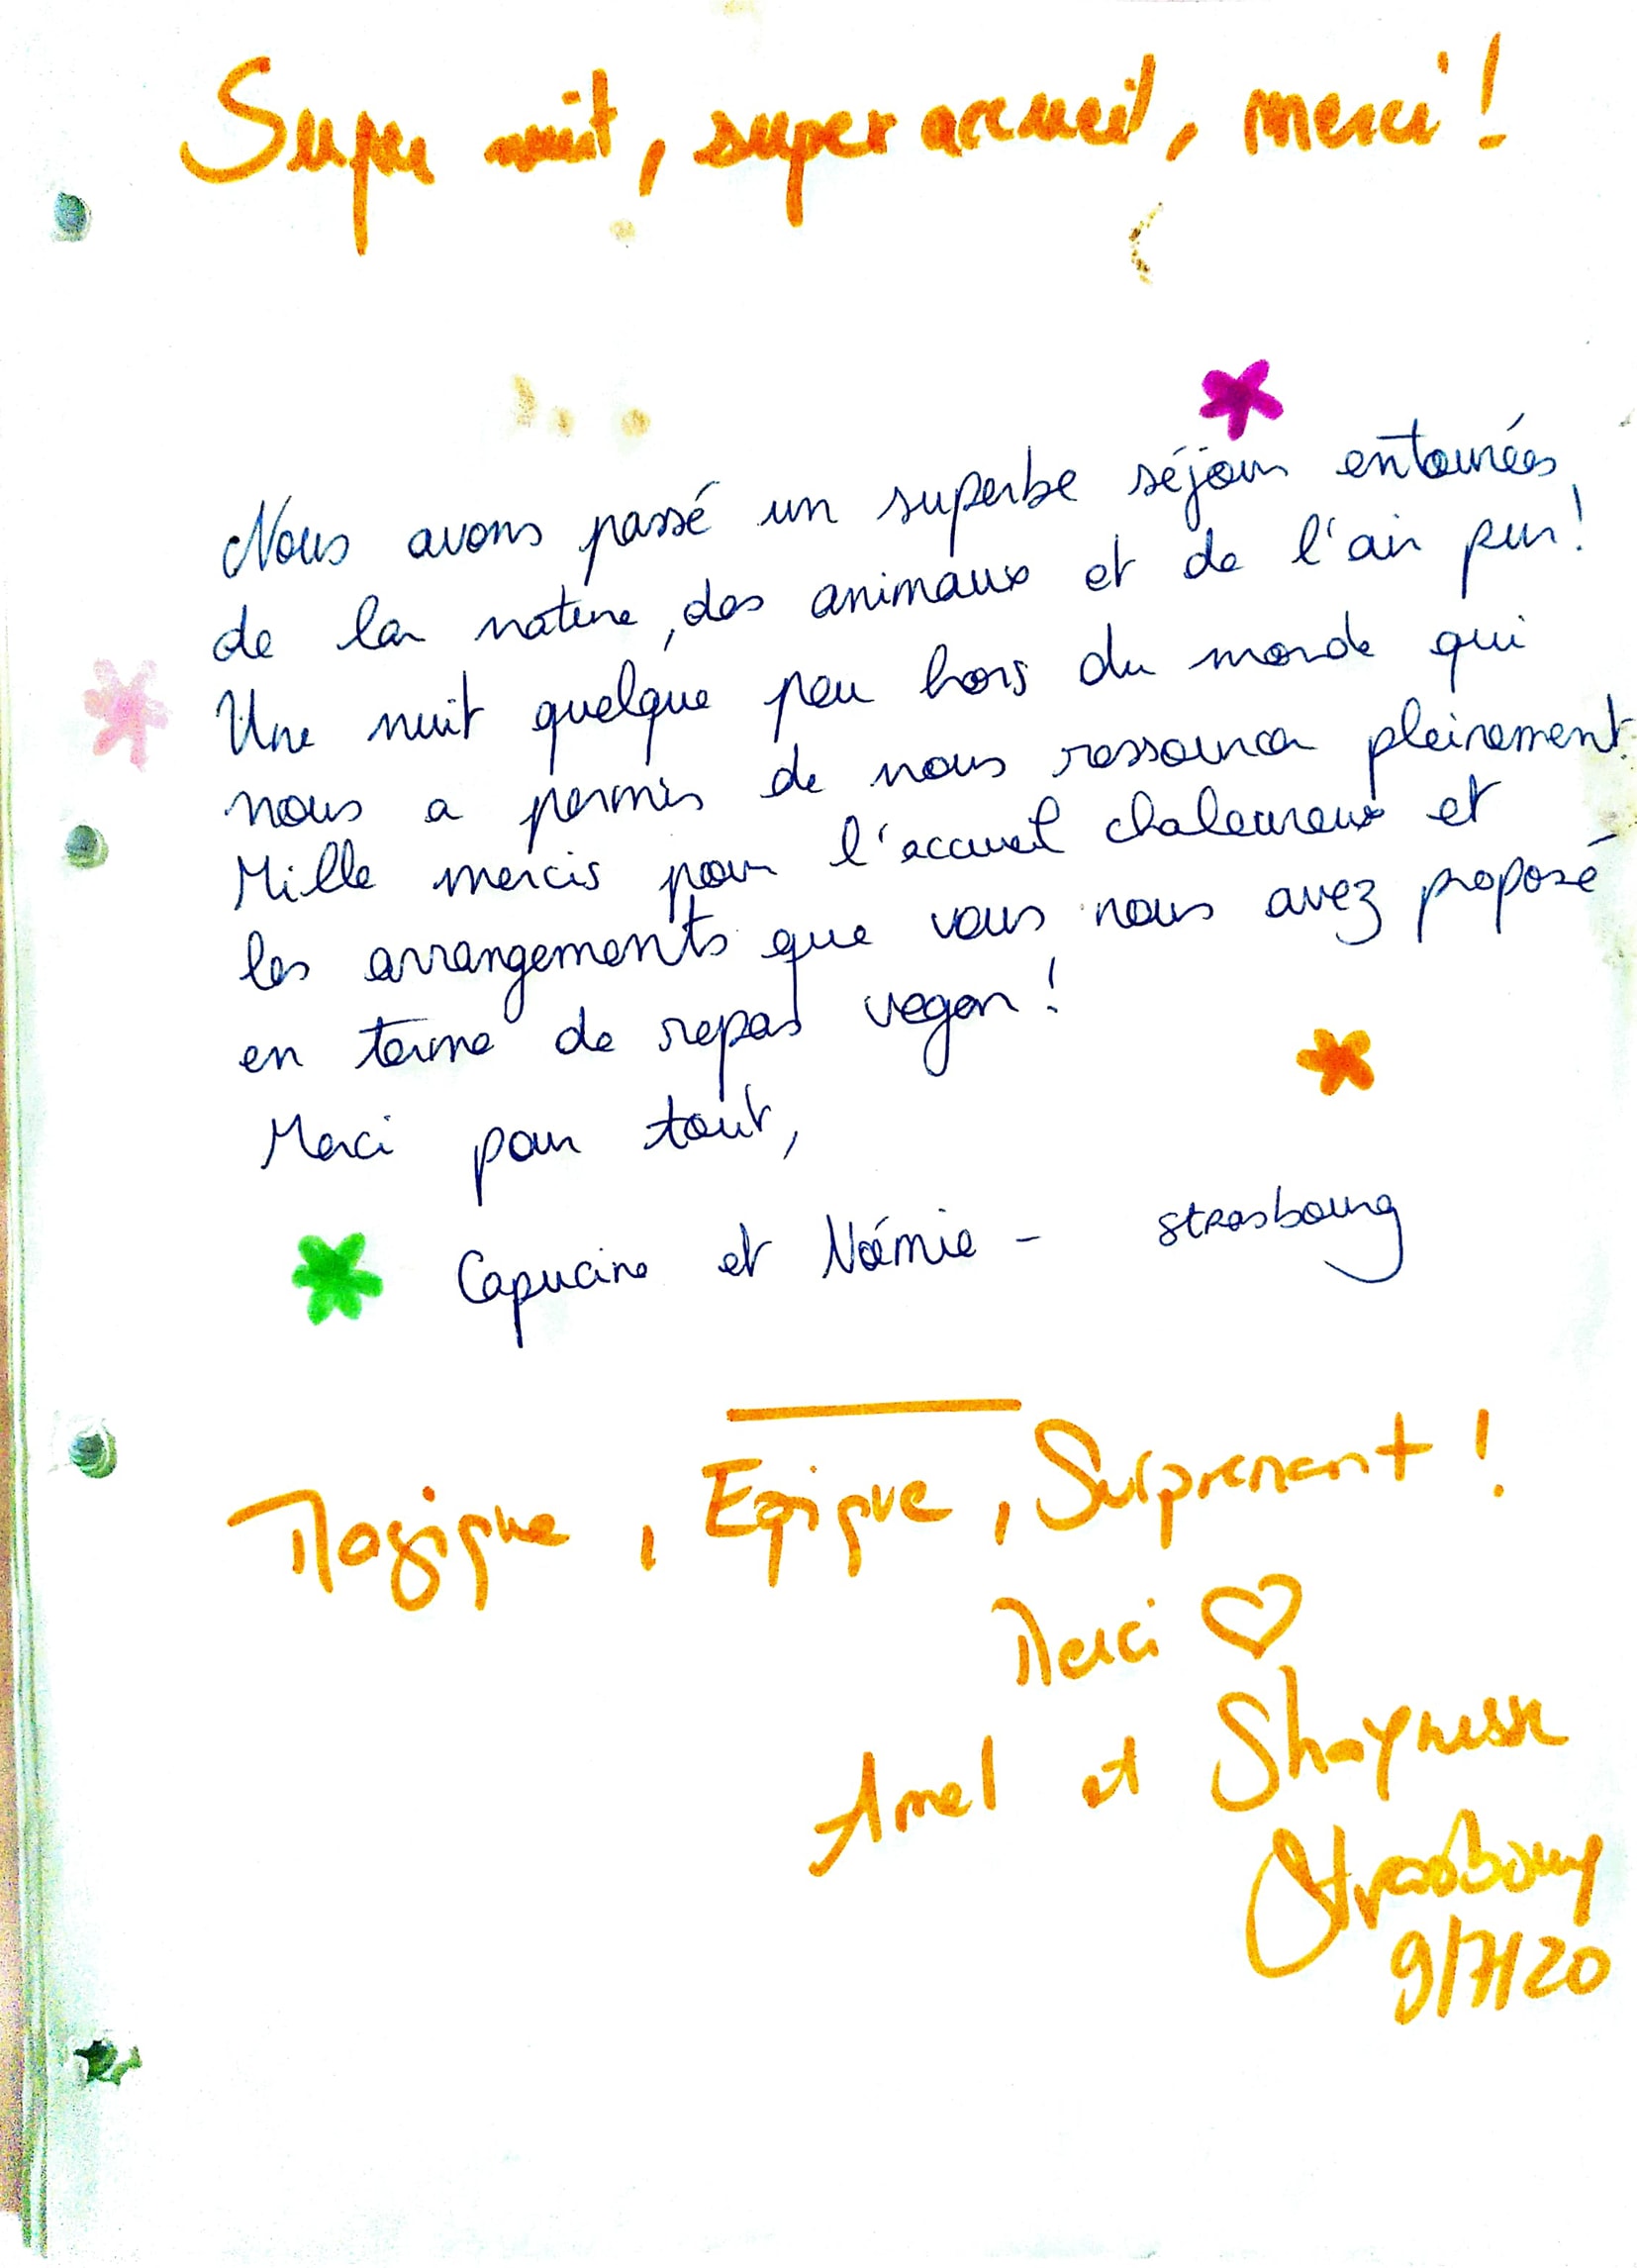 Super nuit, super accueil, merci !
Nous avons passé un superbe séjour entourées
de la nature, des animaux et de l'air pur !
Une nuit quelque peu hors du monde qui
nous a permis de nous ressourcer pleinement.
Mille mercis pour l'accueil chaleureux et
les arrangements que vous nous avez proposé
en terme de repas vegan !
Merci pour tout,
Capucine et Noémie - Strasbourg
Magique, Epique, Surprenant !
Merci ♡
Amel et
Strasbourg
9/7/20